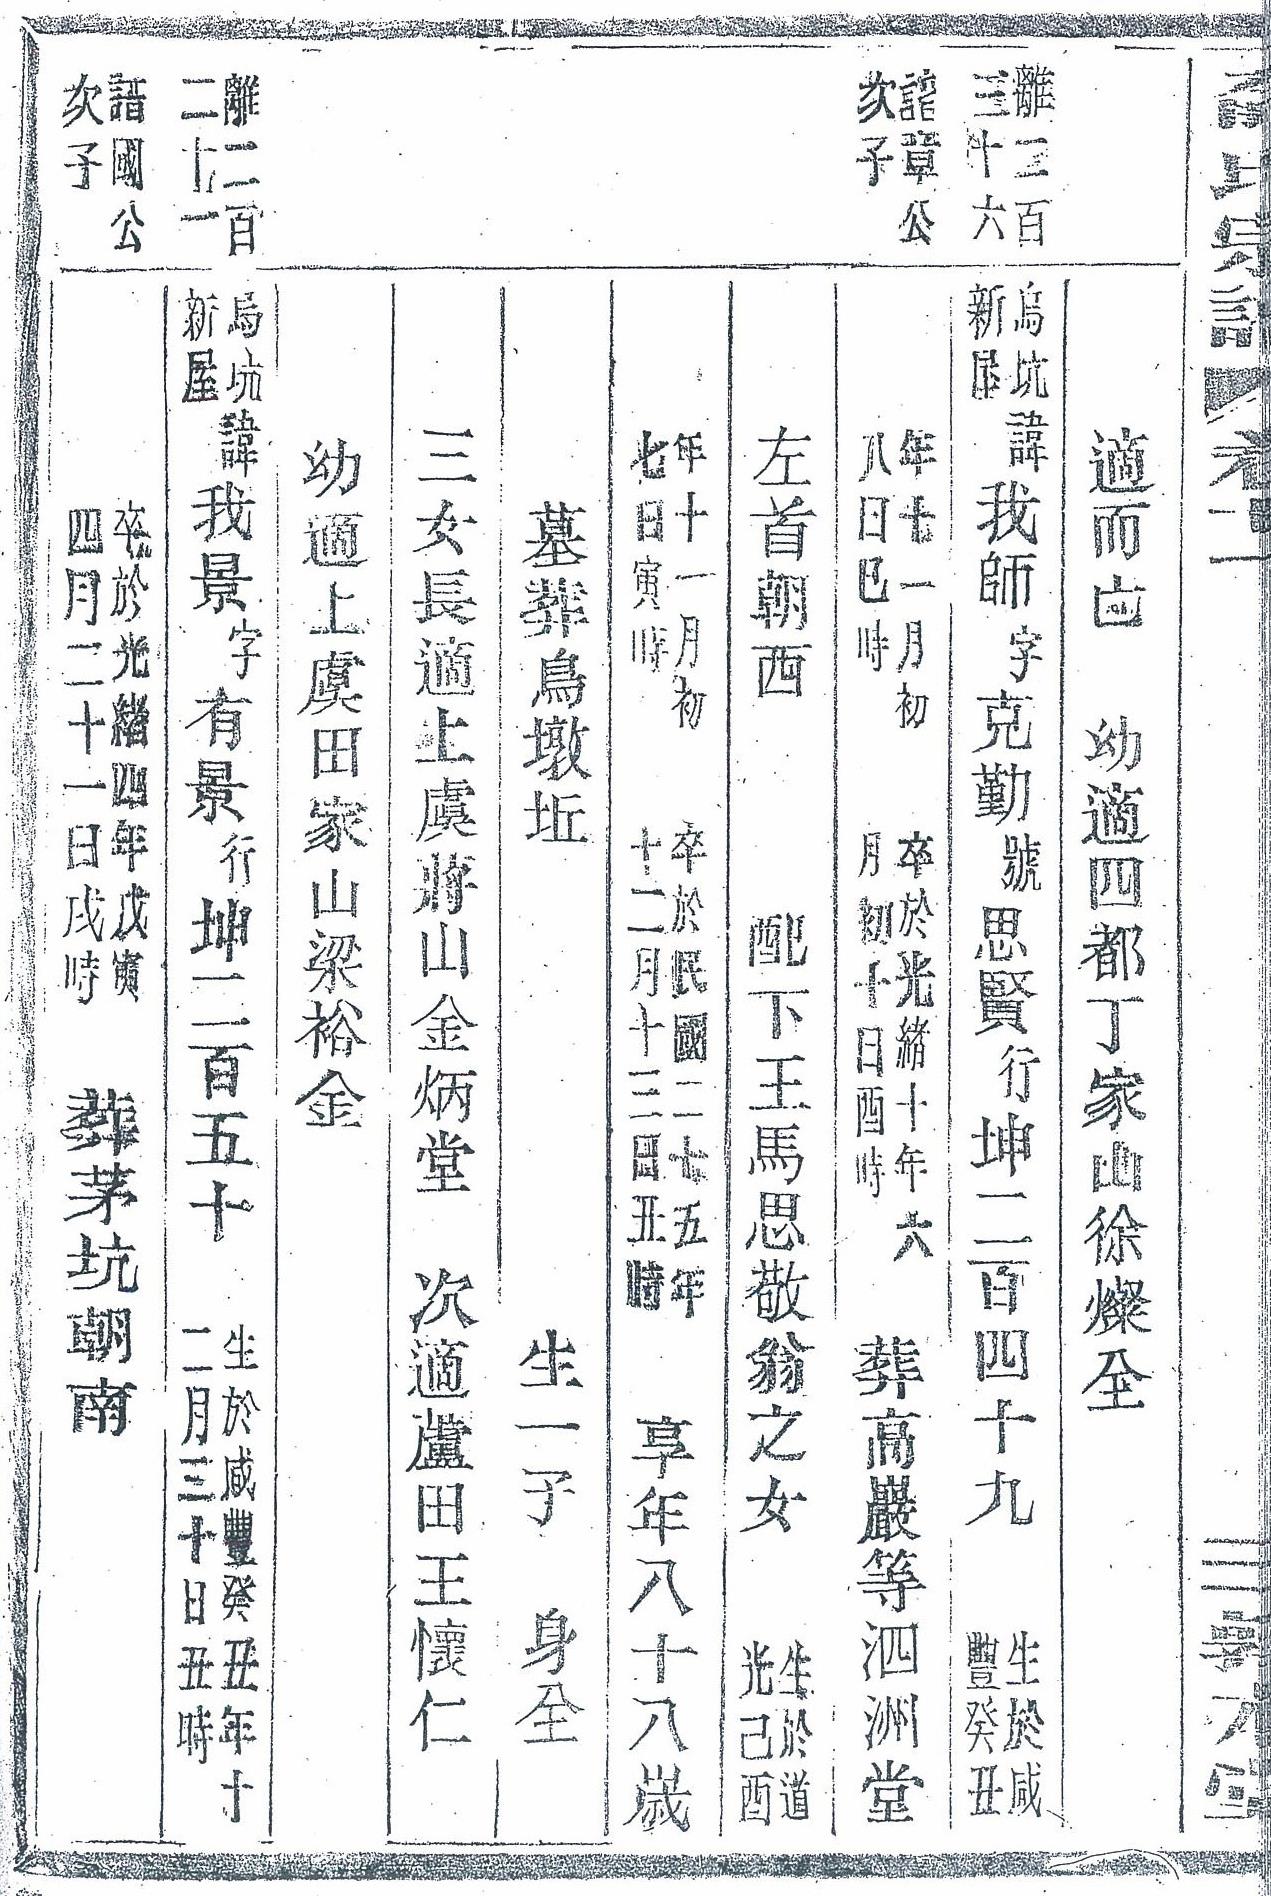 氏宗譜 卷二
適而 幼適四都丁家山徐燦全
離二百三十六 烏坑新屋 諱我師字克勤號思賢行坤二百四十九 生於咸豐癸丑
諮章公次子 年七一月初八日巳時 卒於光緒十年六月初十日酉時 葬高嚴等泗洲堂
左首朝西 配下王馬思敬翁之女 生於道光己酉
年十一月初七日寅時 卒於民國二七五年十二月十三日丑時 享年八十八歲
墓葬鳥墩坵 生一子 身全
三女長適上虞蔣山金炳堂 次適蘆田王懷仁
幼適上虞田家山梁裕金
離二百二十一 烏坑新屋 諱我景字有景行坤二百五十 生於咸豐癸丑年十二月三十日丑時
諮國公次子 卒於光緒四年戊寅四月二十一日戌時 葬茅坑朝南